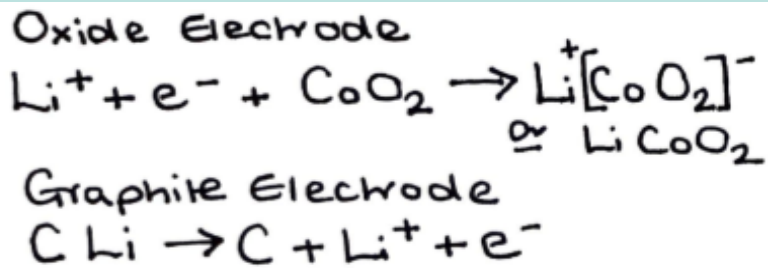 Oxide Electrode
Li⁺ + e⁻ + CoO₂ → Li⁺[CoO₂]⁻
or LiCoO₂
Graphite Electrode
C Li → C + Li⁺ + e⁻